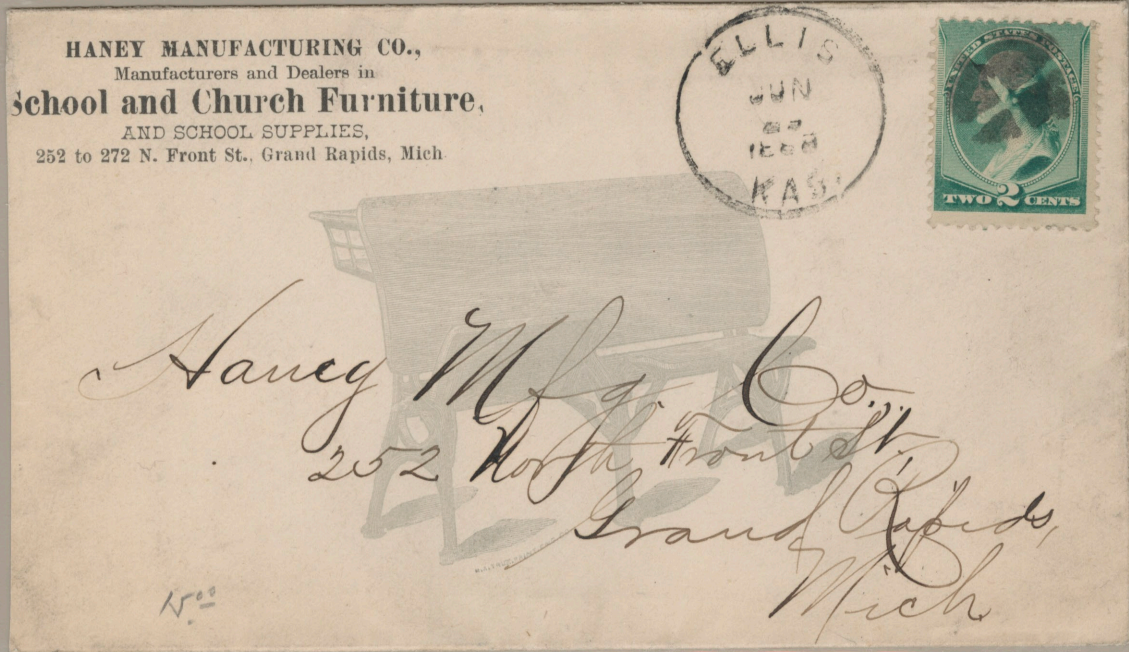 HANEY MANUFACTURING CO.,
Manufacturers and Dealers in
School and Church Furniture,
AND SCHOOL SUPPLIES,
252 to 272 N. Front St., Grand Rapids, Mich
ELLIS
JUN
KAS.
UNITED STATES POSTAGE
TWO 2 CENTS
Haney Mfg. Co.
252 North Front St.
Grand Rapids,
Mich.
15.00